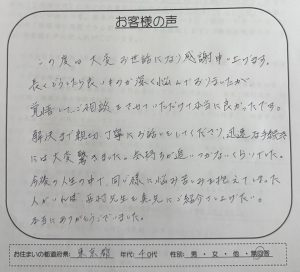 お客様の声
この度は大変お世話になり感謝申し上げます。
長くどうしたら良いものか深く悩んでおりましたが、
覚悟してご相談をさせていただけて本当に良かったです。
解決まで親切、丁寧にお話をしてくださり、迅速な手続き
には大変驚きました。気持ちが追いつかないくらいでした。
今後の人生の中で、同じ様に悩み苦しみを抱えてしまった
人がいれば 先生を真先にご紹介して上げたい。
本当にありがとうございました。
お住まいの都道府県: 東京都 年代: 40代 性別: 男・女・他・無回答